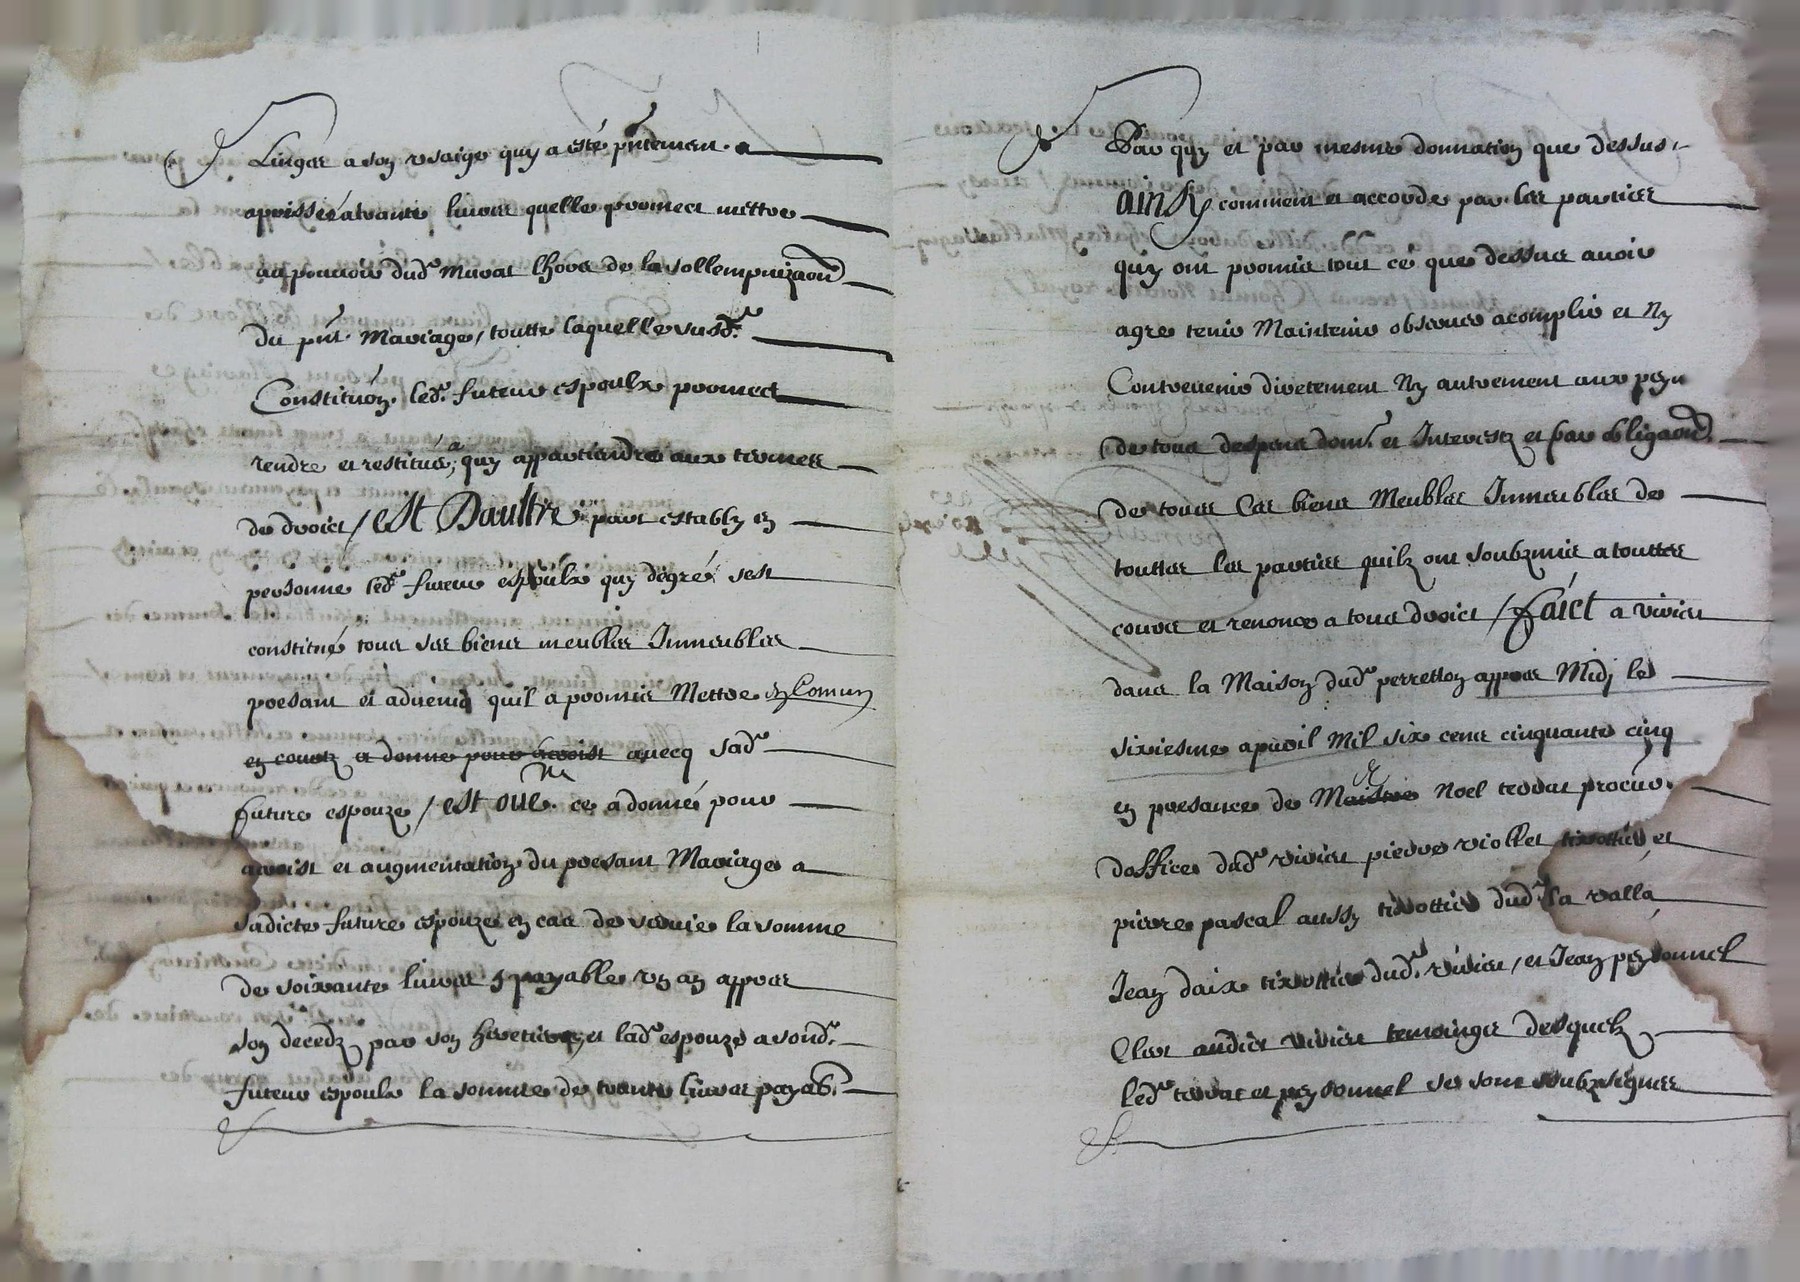 Linges a son usaige quy a esté pntement
apprissé a trante livres quelle promect mettre
au pouvoir dudt Murat lhors de la sollempnizaon
du pnt Mariage / toutte laquelle susde
Constituon ledt futeur espoulx promect
rendre et restituer, a quy appartiendra aux termes
de droict / est Daultre part estably en
personne ledt futeur espoulx quy de gré sest
constitué tous ses biens meubles Immeubles
presant et advenir quil a promis Mettre en Comun
en couvtz et donne pour avoist avecq sade
future espouze / est oue ce a donné pour
avoist et augmentation du presant Mariage a
sadicte future espouze en cas de survie la somme
de soixante livres payable un an appres
son decedz par son heretier, et lade espouze a sondt
futeur espoulx la somme de trante livres payab.
Par quy et par mesme donnation que dessus
ainsy comment et accorde par les parties
quy ont promis tout ce que dessus avoir
agre tenir Maintenir observer acomplir et Ny
Contrevenir diretement Ny autrement aux peyn
de tous despens dom. et Interestz et par obligaon
de tous Ces biens Meubles Immeubles de
touttes les parties quilz ont soubzmis a touttes
cours et renonce a tous droict / Faict a viviers
dans la Maison dudt perretton appres Midj le
sixiesme apvril Mil six cens cinquante cinq
en presance de Me Noel terrat procur.
doffice dudt viviers pierre viollet travottier et
pierre pascal aussy travottier dudt la valla
Jean daix travottier dudt viviers / et Jean peyronnel
Clerc audict viviers temoings desquelz
ledt terrat et peyronnel se sont soubzsignes